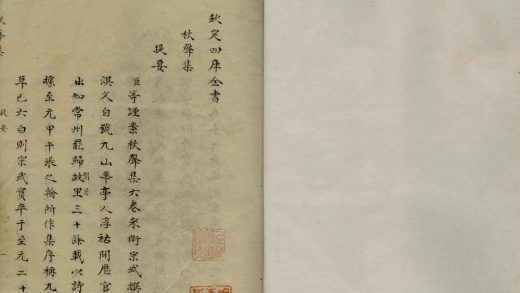 欽定四庫全書
秋聲集
提要
臣等謹案秋聲集六卷宋衛宗武撰
淇父自號九山華亭人淳祐間歷官
出知常州罷歸故里閒居三十餘載以詩
據至元甲午張之翰所作集序稱九
草已六白則宗武實卒于至元二十
秋聲集
提要